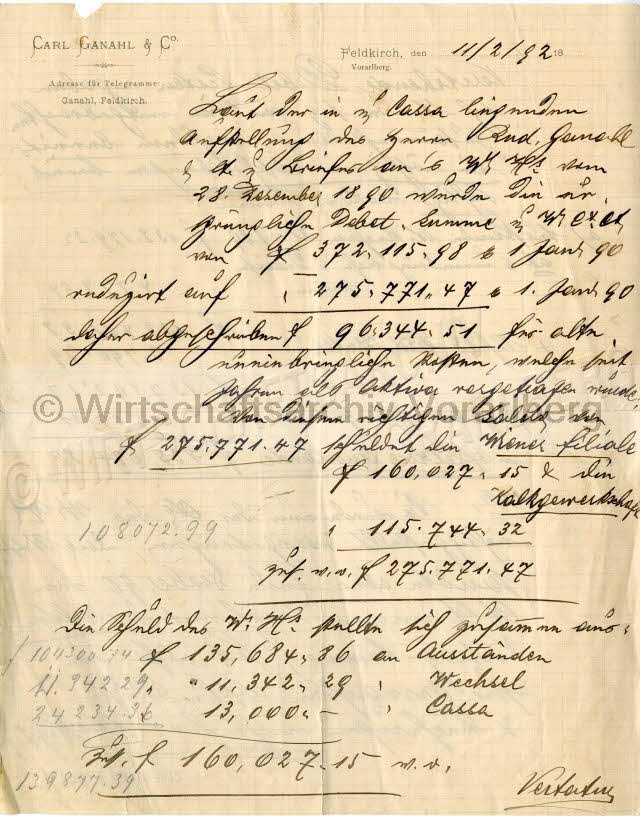 CARL GANAHL & Co.
Adresse für Telegramme:
Ganahl, Feldkirch.
Feldkirch, den 11/2/92 18
Vorarlberg.
Laut der in u/ Cassa liegenden
Aufstellung des Herrn Rud. Ganahl
& Briefes an W. Hs vom
28. Dezember 1890 wurde die ur-
sprüngliche Debet-Summe
von f 372.115.98 1 Jan 90
reduzirt auf " 275.771.47 1. Jan 90
daher abgeschrieben f 96.344.51 für alte
uneinbringliche Posten, welche seit
Jahren als Aktiva vorgetragen wurden
Von diesem richtigen Saldo von
f 275.771.47 schuldet die Wiener Filiale
f 160,027.15 & die
Kalkgewerkschaft
108072.99 " 115.744.32
zus. w. o. f 275.771.47
Die Schuld des W. Hs. stellte sich zusammen aus:
f 135,684.86 an Ausständen
11.342 29 " " 11,342.29 " Wechsel
24234.36 13,000.– " Cassa
zus. f 160,027.15 w. o.
139877.39
© Wirtschaftsarchiv Vorarlberg